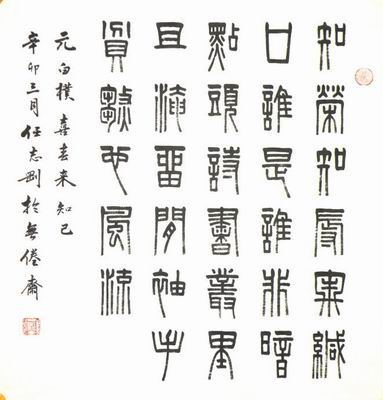 知榮知辱牢緘
口誰是誰非暗
點頭詩書叢里
且淹留閒袖手
貧煞也風流
元白樸喜春来知己
辛卯三月任志剛於無倦齋